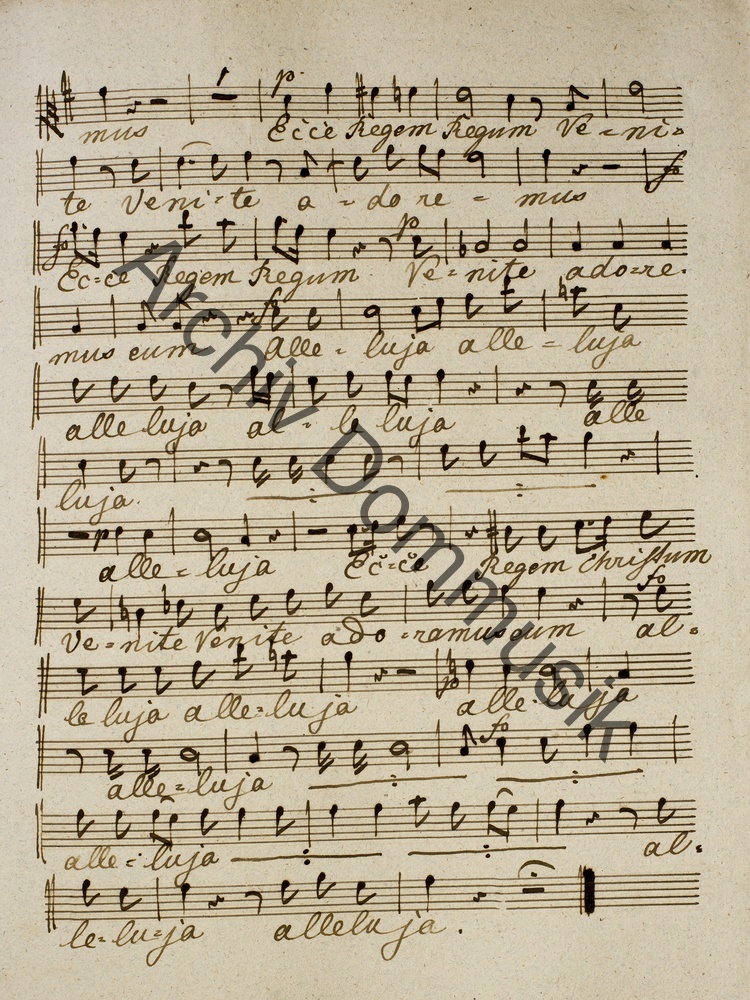 p
mus Ecce Regem Regum Ve = ni =
fo
te Veni = te a = do re = mus
fo p
Ec = ce Regem Regum Ve = nite ado = re.
fo
mus eum Alle = luja alle = luja
alleluja al = le luja alle
luja.
p
alle = luja Ec = ce Regem Christum
fo
Ve = nite Venite ado = ramus eum al =
p
le luja alle = luja alle = luja
fo
alle = luja
alle = luja al =
le = lu = ja alleluja.
Archiv Dommusik